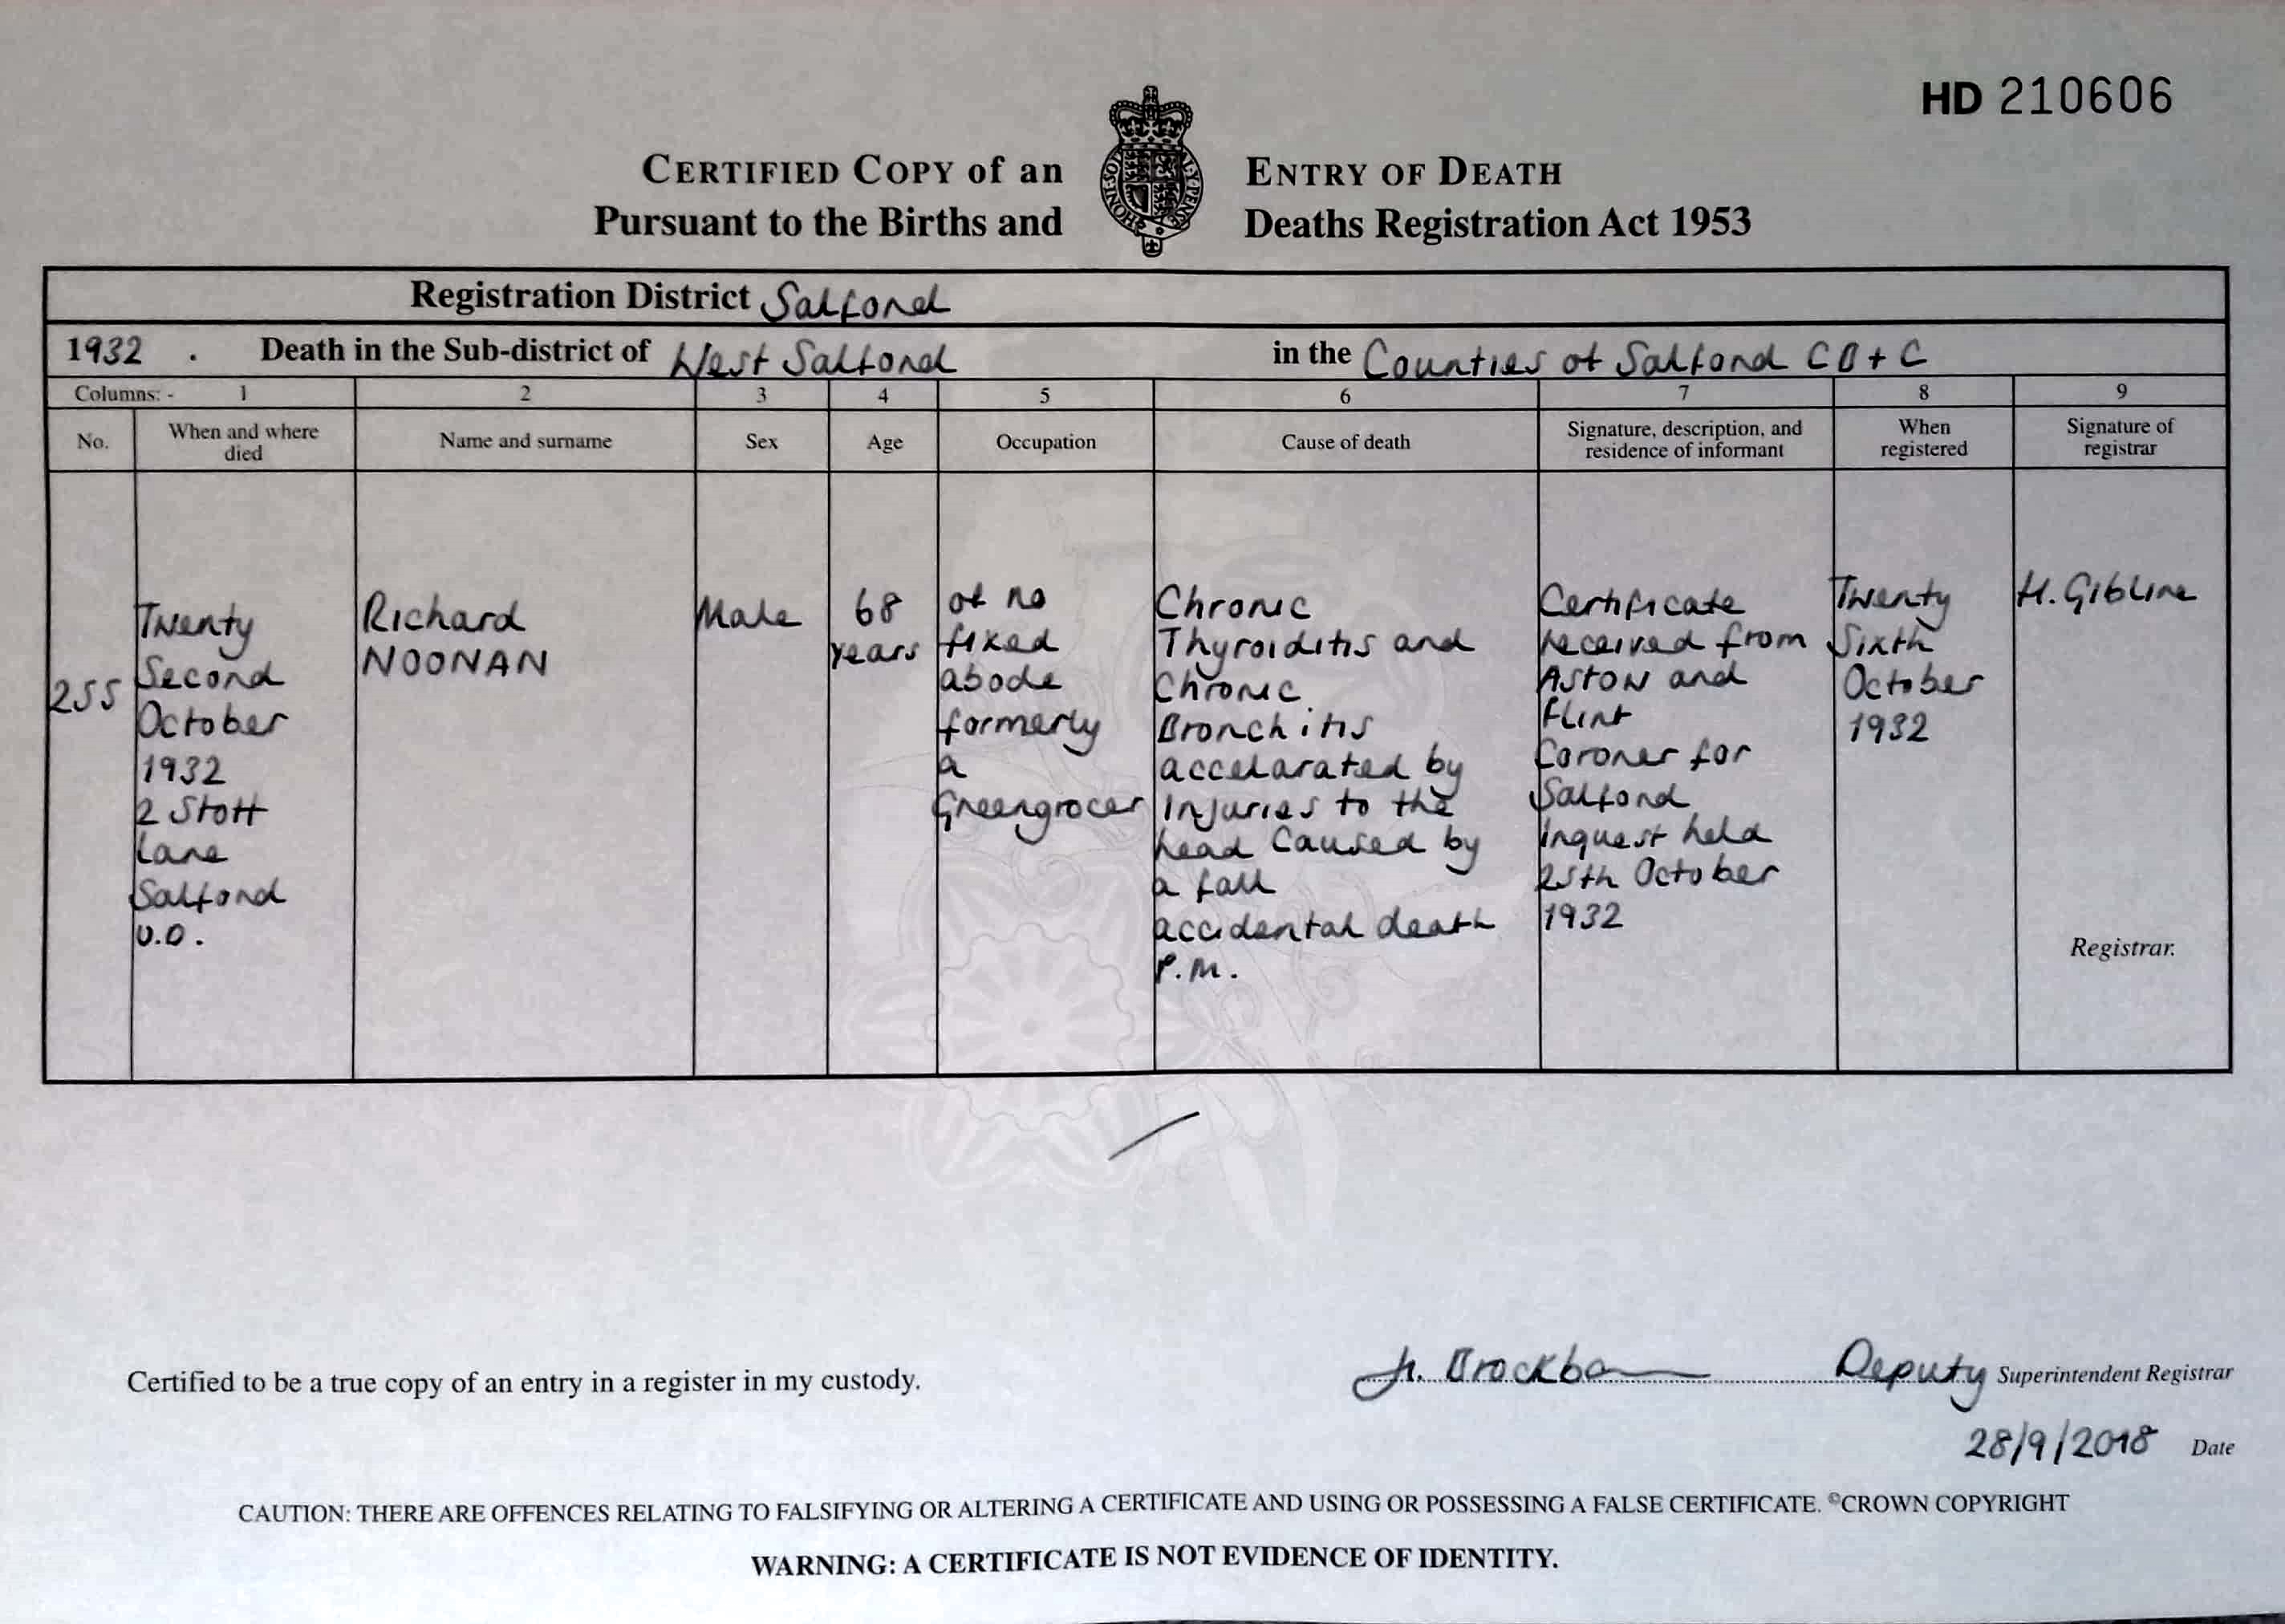 HD 210606
CERTIFIED COPY of an ENTRY OF DEATH
Pursuant to the Births and Deaths Registration Act 1953
Registration District Salford
1932 . Death in the Sub-district of West Salford in the Counties of Salford CB + C
Columns: - 1 2 3 4 5 6 7 8 9
No.
When and where
died
Name and surname
Sex
Age
Occupation
Cause of death
Signature, description, and
residence of informant
When
registered
Signature of
registrar
255
Twenty
Second
October
1932
2 Stott
Lane
Salford
U.D.
Richard
NOONAN
Male
68
years
of no
fixed
abode
formerly
a
Greengrocer
Chronic
Thyroiditis and
Chronic
Bronchitis
accelarated by
Injuries to the
head Caused by
a fall
accidental death
P.M.
Certificate
received from
Aston and
Flint
Coroner for
Salford
inquest held
25th October
1932
Twenty
Sixth
October
1932
H. Gibline
Registrar.
Certified to be a true copy of an entry in a register in my custody.
Deputy Superintendent Registrar
28/9/2018 Date
CAUTION: THERE ARE OFFENCES RELATING TO FALSIFYING OR ALTERING A CERTIFICATE AND USING OR POSSESSING A FALSE CERTIFICATE. ©CROWN COPYRIGHT
WARNING: A CERTIFICATE IS NOT EVIDENCE OF IDENTITY.